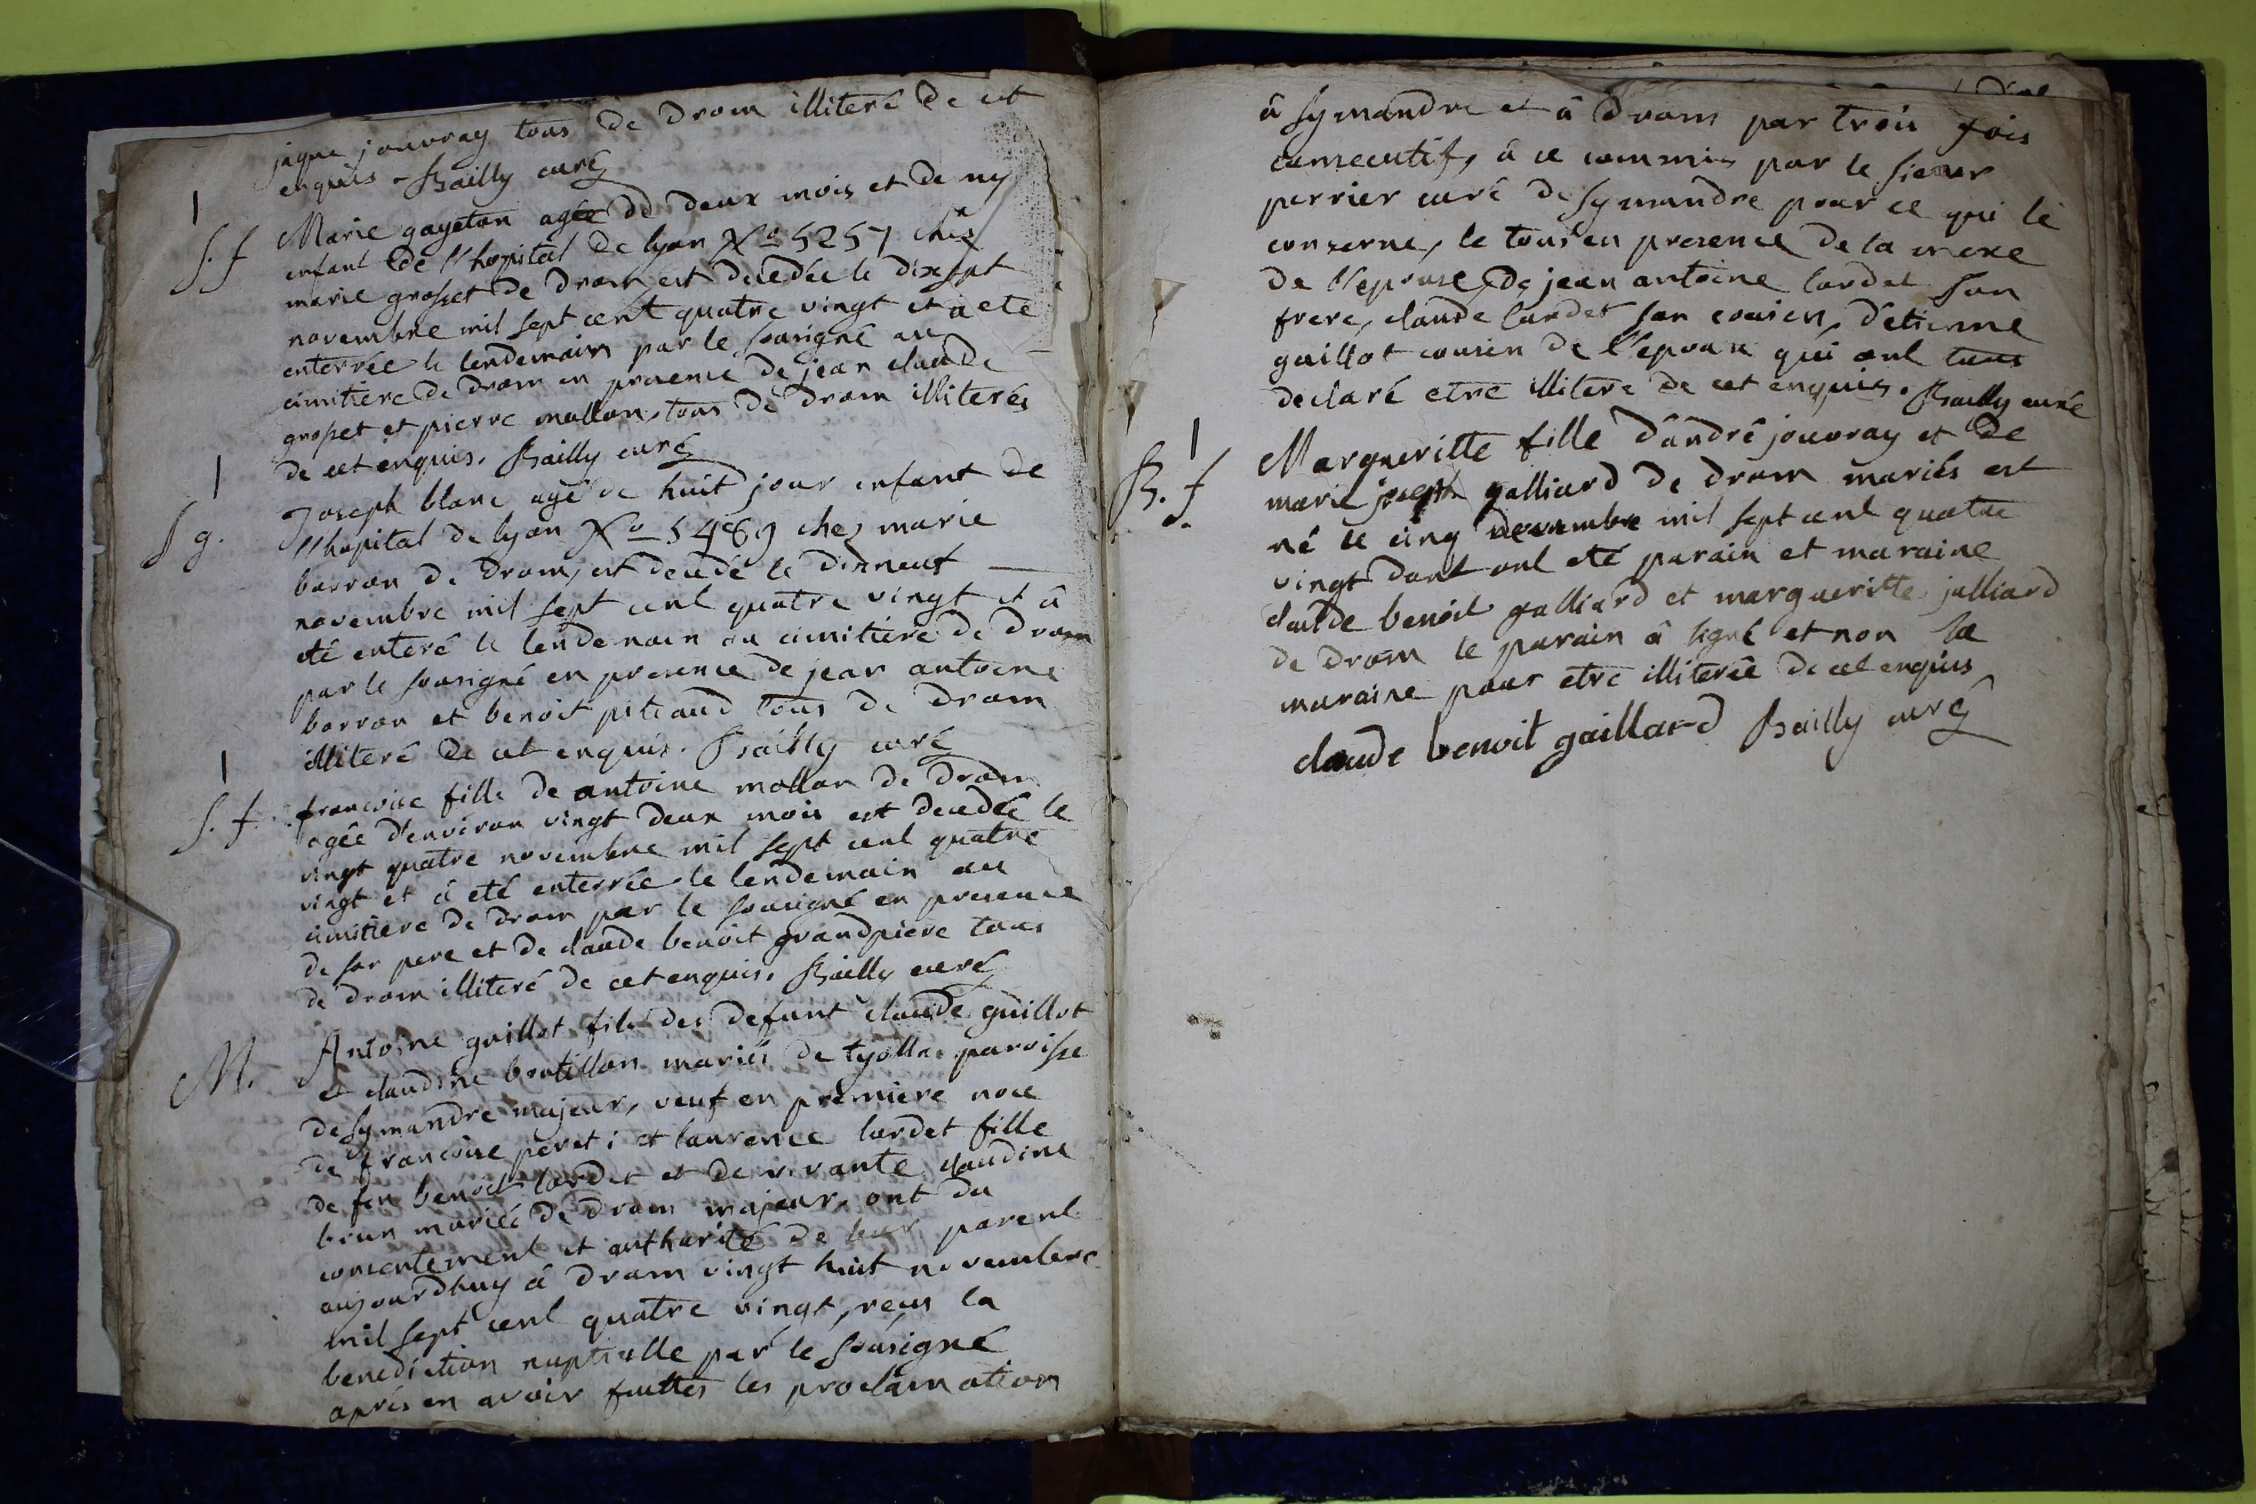 jaque jouvray tous de drom illiteré de cet
enquis - Bailly curé
1
S. f
Marie gayetan agée de deux mois et de my
enfant de l'hopital de lyon No 5257 chez
marie grosset de drom est decedée le dixsept
novembre mil sept cent quatre vingt et a eté
enterrée le lendemain par le sousigné au
cimitiere de drom en presence de jean claude
grosset et pierre mollon tous de drom illiterés
de cet enquis. Bailly curé
1
S g.
Joseph blanc agé de huit jour enfant de
l'hopital de lyon No 5489 chez marie
borron de drom, est decedé le dixneuf
novembre mil sept cent quatre vingt et à
eté enteré le lendemain au cimitiere de drom
par le sousigné en presence de jean antoine
borron et benoit piteaud tous de drom
illiteré de cet enquis. Bailly curé
1
S. f.
francoise fille de antoine mollon de drom
agée d'environ vingt deux mois est decedée le
vingt quatre novembre mil sept cent quatre
vingt et à eté enterrée le lendemain au
cimitiere de drom par le sousigné en presence
de son pere et de claude benoit grandpiere tous
de drom illiteré de cet enquis. Bailly curé
M.
Antoine guillot fils des defunt claude guillot
et claudine boutillon mariés de tyolle paroisse
de symandre majeur, veuf en premiere noce
de francoise peret ; et laurence lardet fille
de feu benoit lardet et de vivante claudine
brun mariée de drom majeur, ont du
consentement et authorité de leur parent
aujourdhuy à drom vingt huit novembre
mil sept cent quatre vingt, reçus la
benediction nuptialle par le sousigné
aprés en avoir faittes les proclamation
à symandre et à drom par trois fois
consecutif, à ce commis par le sieur
perrier curé de symandre pour ce qui le
conserne, le tous en presence de la mere
de l'epouse, de jean antoine lardet son
frere, claude lardet son cousin, d'etienne
guillot cousin de l'epoux qui ont tous
declaré etre illiteré de cet enquis. Bailly curé
1
B. f
Margueritte fille d'andré jouvray et de
marie joseph galliard de drom mariés est
né le cinq decembre mil sept cent quatre
vingt dont ont eté parain et maraine
claude benoit galliard et margueritte julliard
de drom le parain à signé et non la
maraine pour etre illiterée de cet enquis
claude benoit gaillard Bailly curé